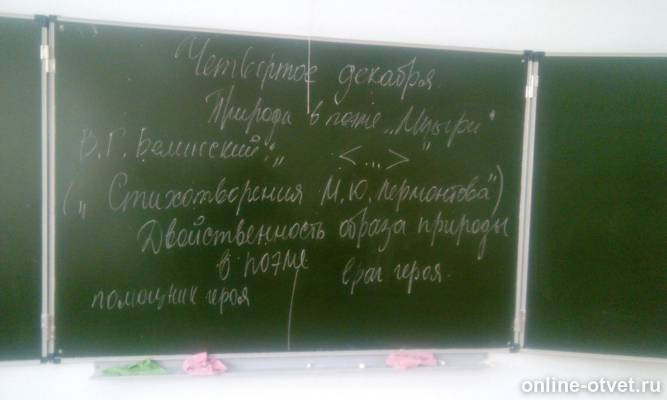 Четвертое декабря.
Природа в поэме „Мцыри"
В. Г. Белинский: „ <...> "
(„Стихотворения М. Ю. Лермонтова")
Двойственность образа природы
в поэме
помощник героя
враг героя.
online-otvet.ru